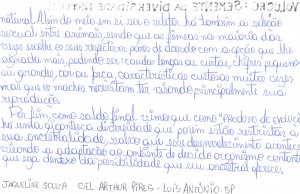 natural. Além do meio em si ser o seletor há também a seleção
sexual entre animais, sendo que as fêmeas na maioria dos
casos escolhe os seus respectivos pares de acordo com a opção que lhe
agrada mais, podendo ser: caudas longas ou curtas, chifres pequenos
ou grandes, cor ou força, características custosas muitas vezes
mas que os machos necessitam ter visando principalmente sua
reprodução.
Por fim, como saldo final vimos que como "PRODUTO DE EVOLUÇÃO
há uma gigantesca diversidade que porém estão restritas a
sua ancestralidade, salvo que seu desenvolvimento acontece
visando a adaptação ao ambiente de dando organismo contanto
que seja dentro da possibilidade que seu ancestral oferece.
JAQUELINE SOUZA CEL ARTHUR PIRES - LUIS ANTÔNIO. SP